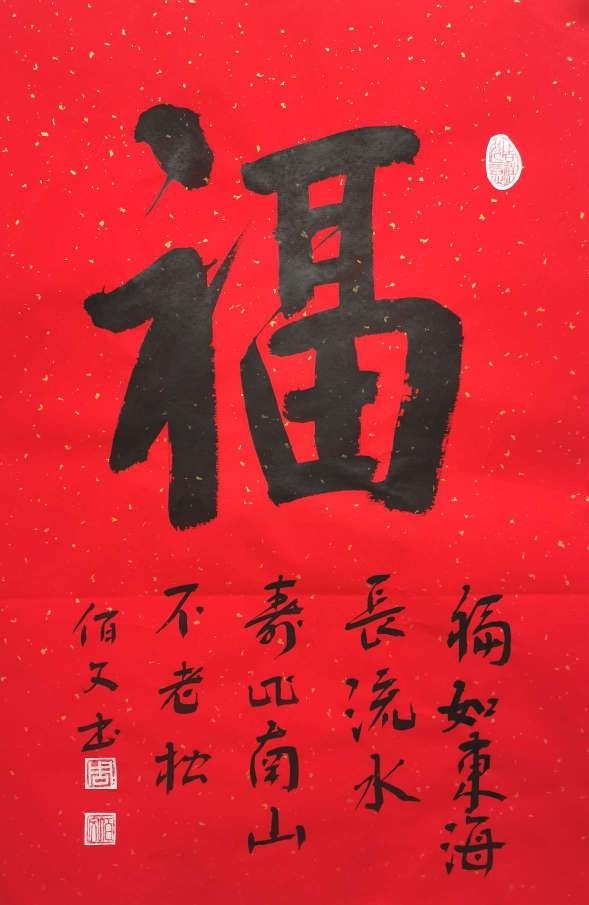 福
福如東海
長流水
壽比南山
不老松
伯文书
周